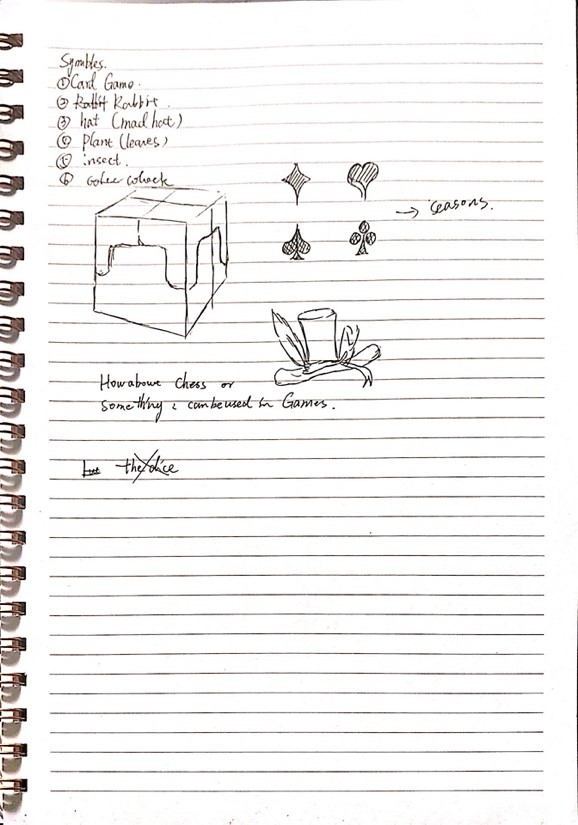 Symbles.
① Card Game.
② Rabbit Rabbit.
③ hat (mad hat)
④ plant (leaves)
⑤ insect.
⑥
→ seasons.
How aboue Chess or
something i can be used in Games.
the dice